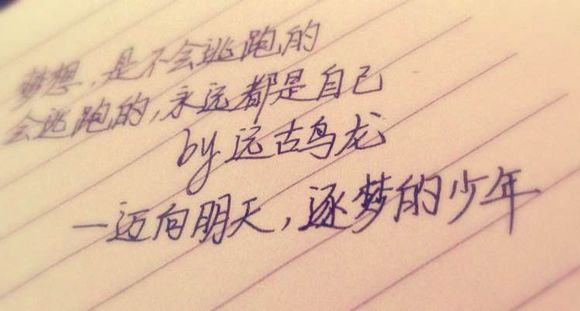 梦想，是不会逃跑的
会逃跑的，永远都是自己
by 远古鸟龙
一迈向明天，逐梦的少年